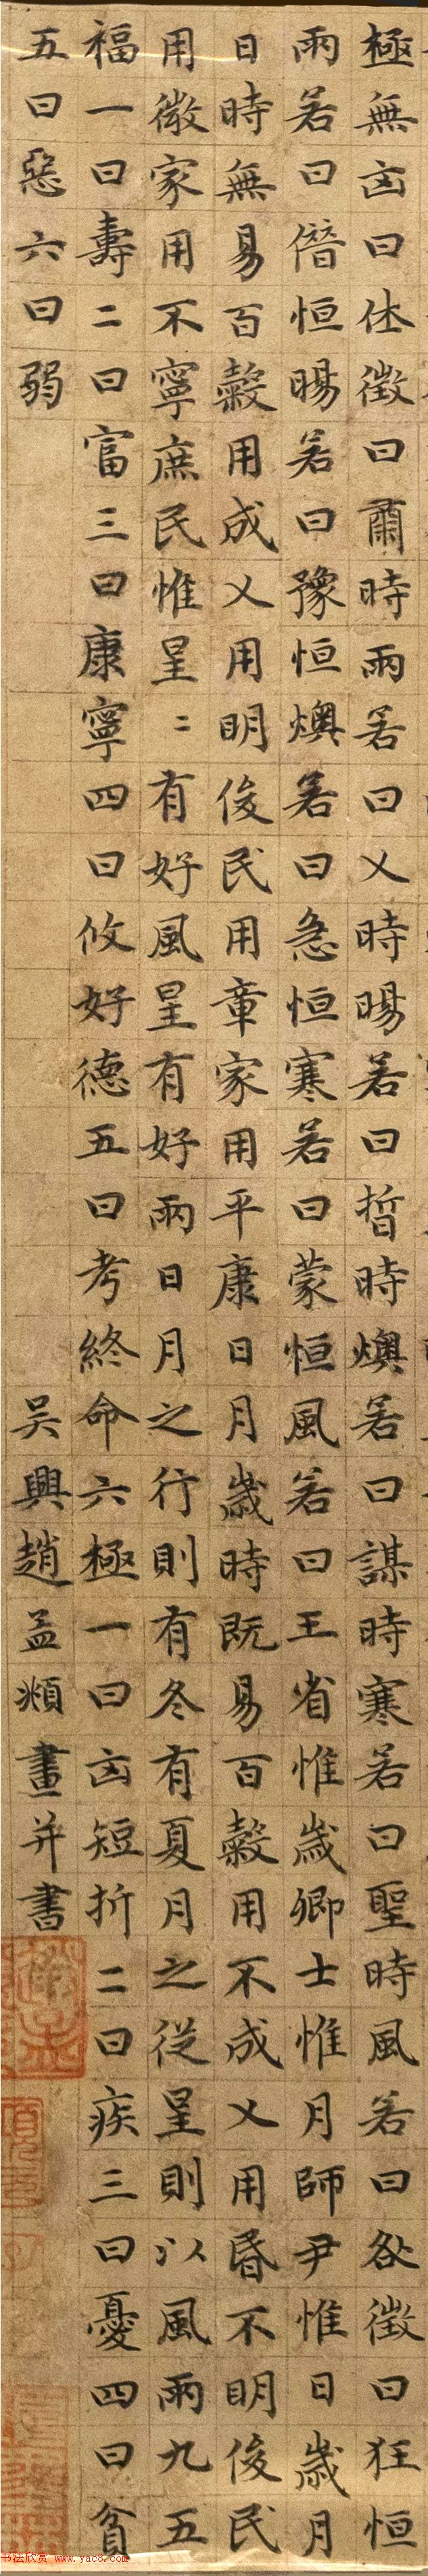 極無凶曰休徵曰肅時雨若曰乂時暘若曰晢時燠若曰謀時寒若曰聖時風若曰咎徵曰狂恒
雨若曰僭恒暘若曰豫恒燠若曰急恒寒若曰蒙恒風若曰王省惟歲卿士惟月師尹惟日歲月
日時無易百穀用成乂用明俊民用章家用平康日月歲時既易百穀用不成乂用昏不明俊民
用微家用不寧庶民惟星〻有好風星有好雨日月之行則有冬有夏月之從星則以風雨九五
福一曰壽二曰富三曰康寧四曰攸好德五曰考終命六極一曰凶短折二曰疾三曰憂四曰貧
五曰惡六曰弱
吳興趙孟頫畫并書
书法欣赏 www.yac8.com